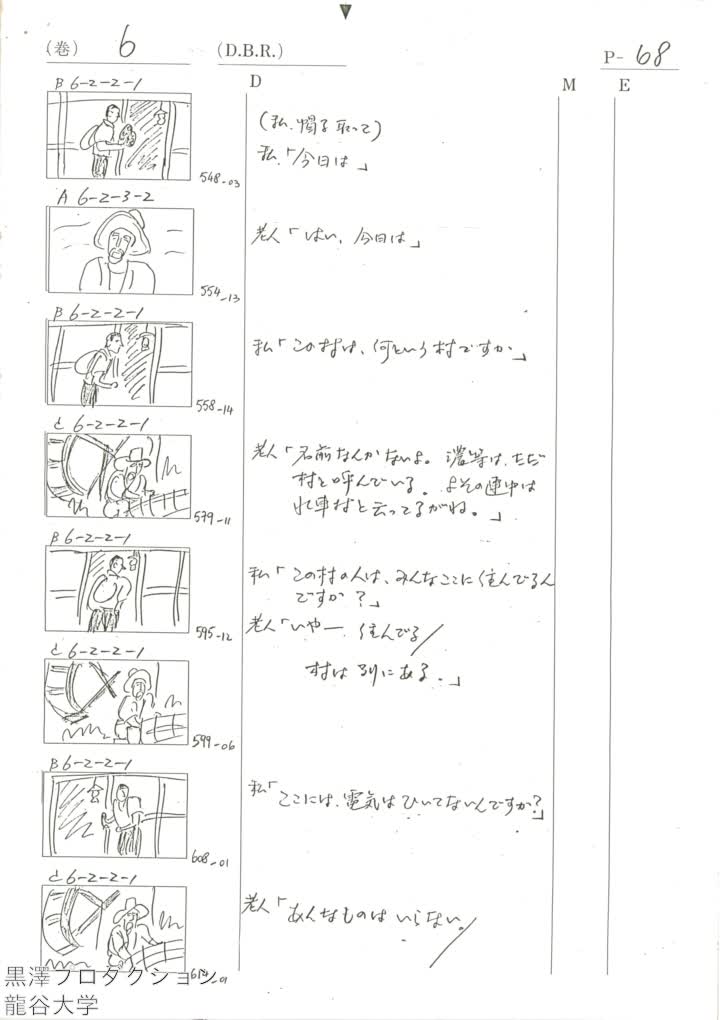 (巻) 6 (D.B.R.) P- 68
D M E
B 6-2-2-1
548-03
(私、帽子取って)
私、「今日は」
A 6-2-3-2
554-13
老人「はい、今日は」
B 6-2-2-1
558-14
私「この村は、何という村ですか」
C 6-2-2-1
579-11
老人「名前なんかないよ。濃等は、ただ
村と呼んでいる。よその連中は
水車村と云ってるがね。」
B 6-2-2-1
595-12
私「この村の人は、みんなここに住んでるん
ですか?」
老人「いやー、住んでる/
村は別にある。」
C 6-2-2-1
599-06
B 6-2-2-1
608-01
私「ここには、電気はひいてないんですか?」
C 6-2-2-1
614-01
老人「あんなものは いらない。
黒澤プロダクション
龍谷大学